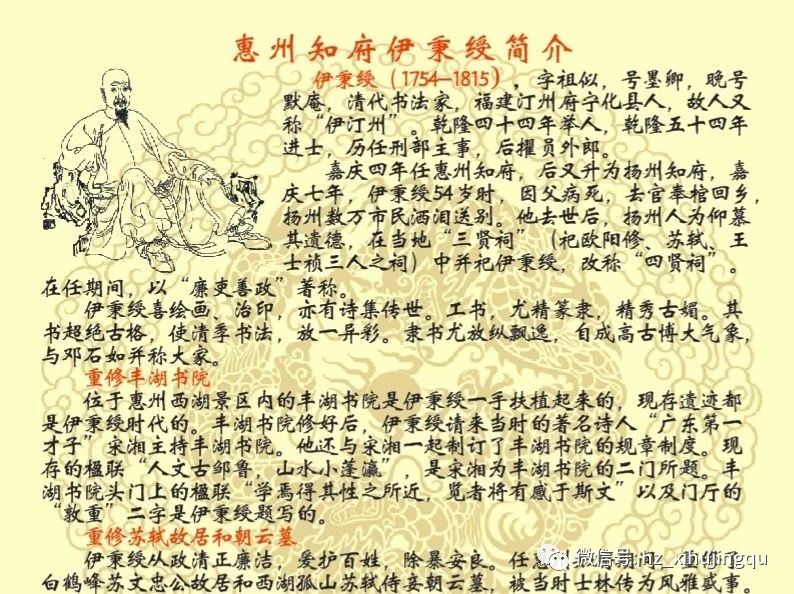 惠州知府伊秉绶简介
伊秉绶（1754—1815），字祖似，号墨卿，晚号
默庵，清代书法家，福建汀州府宁化县人，故人又
称“伊汀州”。乾隆四十四年举人，乾隆五十四年
进士，历任刑部主事，后擢员外郎。
嘉庆四年任惠州知府，后又升为扬州知府，嘉
庆七年，伊秉绶54岁时，因父病死，去官奉棺回乡，
扬州数万市民洒泪送别。他去世后，扬州人为仰慕
其遗德，在当地“三贤祠”（祀欧阳修、苏轼、王
士祯三人之祠）中并祀伊秉绶，改称“四贤祠”。
在任期间，以“廉吏善政”著称。
伊秉绶喜绘画、治印，亦有诗集传世。工书，尤精篆隶，精秀古媚。其
书超绝古格，使清季书法，放一异彩。隶书尤放纵飘逸，自成高古博大气象，
与邓石如并称大家。
重修丰湖书院
位于惠州西湖景区内的丰湖书院是伊秉绶一手扶植起来的，现存遗迹都
是伊秉绶时代的。丰湖书院修好后，伊秉绶请来当时的著名诗人“广东第一
才子”宋湘主持丰湖书院。他还与宋湘一起制订了丰湖书院的规章制度。现
存的楹联“人文古邹鲁，山水小蓬瀛”，是宋湘为丰湖书院的二门所题。丰
湖书院头门上的楹联“学焉得其性之所近，览者将有感于斯文”以及门厅的
“敦重”二字是伊秉绶题写的。
重修苏轼故居和朝云墓
伊秉绶从政清正廉洁，爱护百姓，除暴安良。任惠
白鹤峰苏文忠公故居和西湖孤山苏轼侍妾朝云墓，被当时士林传为风雅盛事。
微信号: hz_xihujingqu